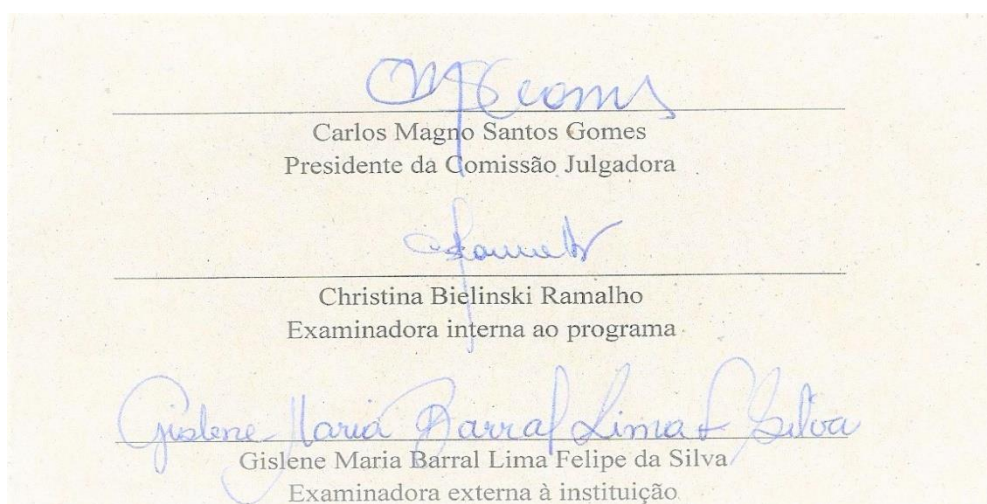 Carlos Magno Santos Gomes
Presidente da Comissão Julgadora
Christina Bielinski Ramalho
Examinadora interna ao programa
Gislene Maria Barral Lima F Silva
Gislene Maria Barral Lima Felipe da Silva
Examinadora externa à instituição